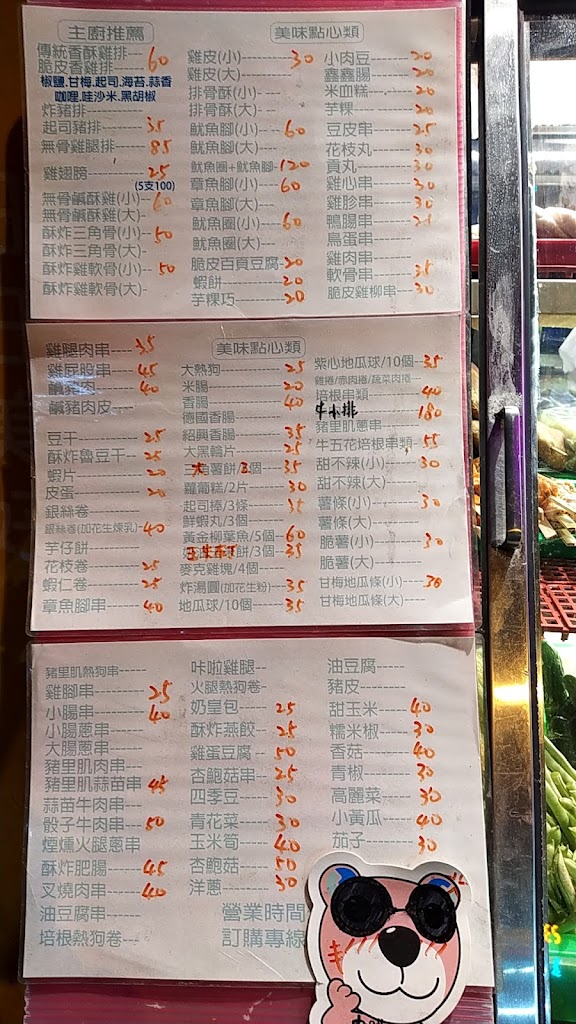 主廚推薦
傳統香酥雞排-- 60
脆皮香雞排----
椒鹽.甘梅.起司.海苔.蒜香
咖哩.哇沙米.黑胡椒
炸豬排--------
起司豬排------ 35
無骨雞腿排---- 85
雞翅膀-------- 25
(5支100)
無骨鹹酥雞(小)- 60
無骨鹹酥雞(大)-
酥炸三角骨(小)- 50
酥炸三角骨(大)-
酥炸雞軟骨(小)- 50
酥炸雞軟骨(大)-
美味點心類
雞皮(小)------ 30
雞皮(大)------
排骨酥(小)----
排骨酥(大)----
魷魚腳(小)---- 60
魷魚腳(大)----
魷魚圈+魷魚腳- 120
章魚腳(小)---- 60
章魚腳(大)----
魷魚圈(小)---- 60
魷魚圈(大)----
脆皮百頁豆腐-- 20
蝦餅---------- 20
芋粿巧-------- 20
小肉豆-------- 20
鑫鑫腸-------- 20
米血糕-------- 20
芋粿---------- 20
豆皮串-------- 25
花枝丸-------- 30
貢丸---------- 30
雞心串-------- 30
雞胗串-------- 30
鴨腸串--------
鳥蛋串--------
雞肉串--------
軟骨串-------- 35
脆皮雞柳串---- 30
雞腿肉串------ 35
雞屁股串------ 45
鹹豬肉-------- 40
鹹豬肉皮------
豆干---------- 25
酥炸魯豆干---- 25
蝦片---------- 20
皮蛋---------- 20
銀絲卷--------
銀絲卷(加花生煉乳)- 40
芋仔餅--------
花枝卷-------- 25
蝦仁卷-------- 25
章魚腳串------ 40
美味點心類
大熱狗-------- 25
米腸---------- 20
香腸---------- 40
德國香腸------
紹興香腸------ 35
大黑輪片------ 25
薯餅/3個 35
蘿蔔糕/2片---- 30
起司棒/3條---- 35
鮮蝦丸/3個----
黃金柳葉魚/5個-- 60
餅/3個-- 35
麥克雞塊/4個----
炸湯圓(加花生粉)-- 35
地瓜球/10個---- 35
紫心地瓜球/10個-- 35
雞捲/赤肉捲/蔬菜肉捲
培根串類------ 40
牛小排 180
豬里肌蔥串----
牛五花培根串類- 55
甜不辣(小)---- 30
甜不辣(大)----
薯條(小)------ 30
薯條(大)------
脆薯(小)------ 30
脆薯(大)------
甘梅地瓜條(小)-- 30
甘梅地瓜條(大)--
豬里肌熱狗串----
雞腳串-------- 25
小腸串-------- 40
小腸蔥串------
大腸蔥串------
豬里肌肉串----
豬里肌蒜苗串-- 45
蒜苗牛肉串----
骰子牛肉串---- 50
煙燻火腿蔥串
酥炸肥腸------ 45
叉燒肉串------ 40
油豆腐串------
培根熱狗卷----
咔啦雞腿--
火腿熱狗卷-
奶皇包------ 25
酥炸燕餃---- 25
雞蛋豆腐---- 50
杏鮑菇串---- 25
四季豆------ 30
青花菜------ 30
玉米筍------ 40
杏鮑菇------ 50
洋蔥-------- 30
油豆腐------
豬皮--------
甜玉米------ 40
糯米椒------ 30
香菇-------- 40
青椒-------- 30
高麗菜------ 30
小黃瓜------ 40
茄子-------- 30
營業時間
訂購專線